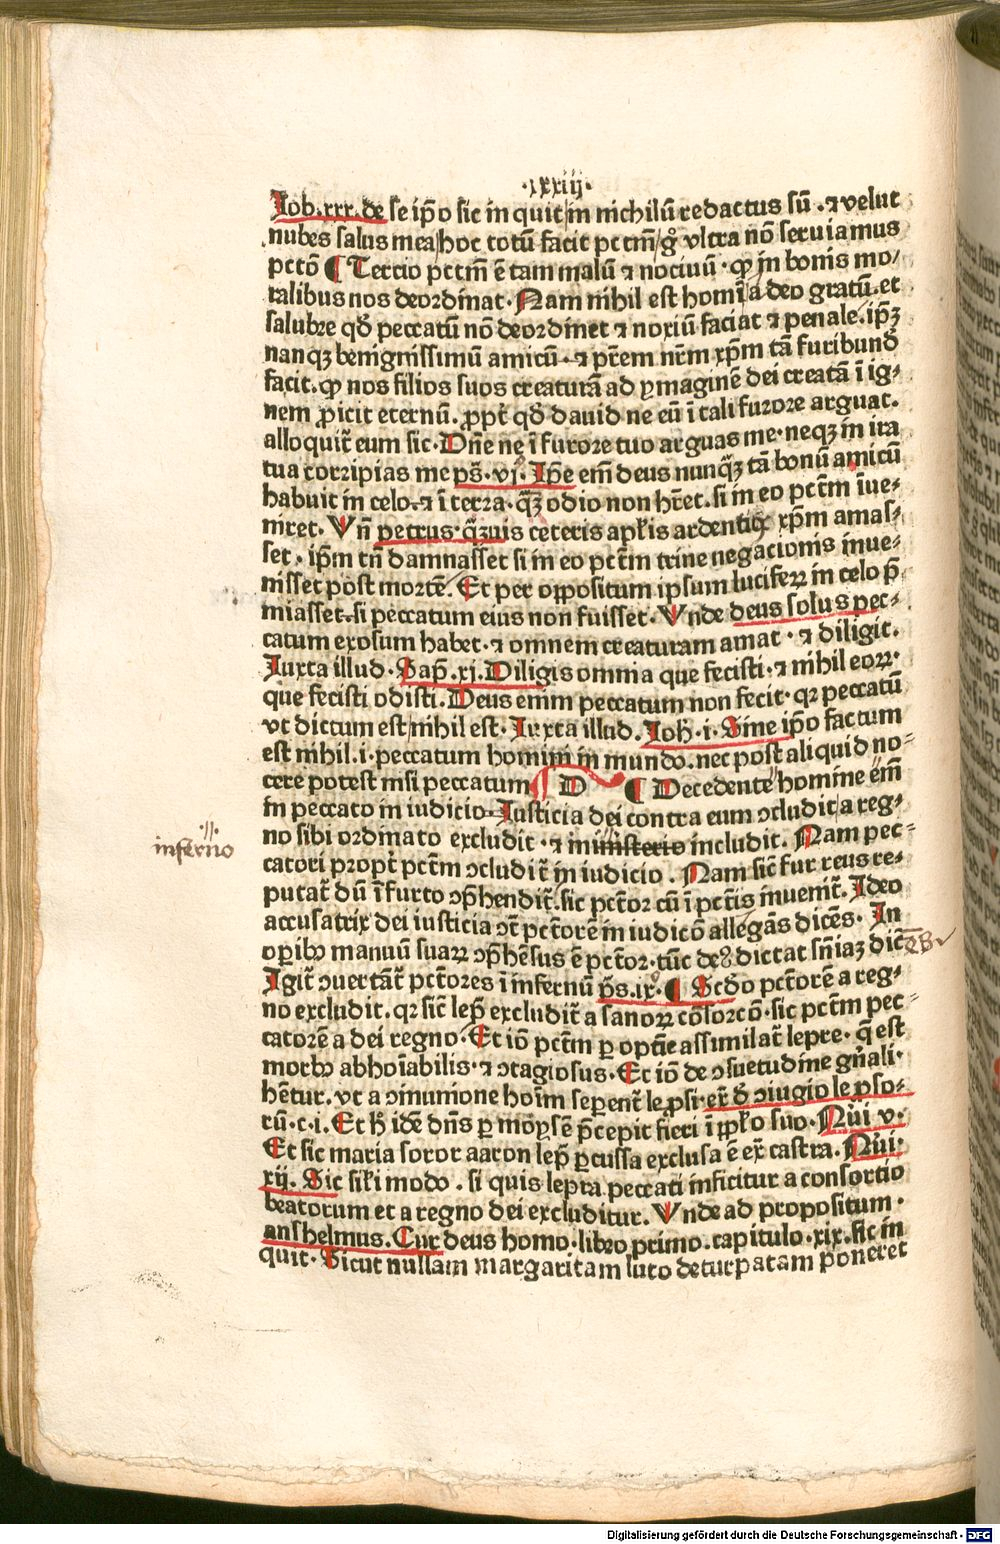 ·lxxiij·
Job.xxx. de se ip̄o sic in quit in nichilū redactus sū .⁊ velut
nubes salus mea/hoc totū facit pctm̄/gͦ vltra nō seruiamus
pctō ¶ Tercio pctm̄ ē tam malū ⁊ nociuū · ꝙ in bonis mo/
ralibus nos deordinat · Nam nihil est homī a deo gratū.et
salubre qd̓ peccatū nō deordinet ⁊ noxiū faciat ⁊ penale. ip̄ꝫ
nanqꝫ benignissimū amicū · ⁊ pr̄em nr̄m xp̄m tā furibund̓
facit. ꝙ nos filios suos creaturā ad ymaginē dei creatā ī ig⸗
nem ꝓicit eternū. ꝓpt̄ qd̓ dauid ne eū ī tali furore arguat.
alloquit̄ eum sic · Dn̄e ne ī furore tuo arguas me · neqꝫ in ira
tua corripias me ps̄. vj. Ip̄e em̄ deus nunqꝫ̄ tā bonū amicū
habuit in celo · ⁊ ī terra · qꝫ̄ odio non hr̄et. si in eo pctm̄ īue⸗
niret · Vn̄ petrus · qꝫ̄uis ceteris apl̓is ardentius xp̄m amas⸗
set · ip̄m tn̄ damnasset si in eo pctm̄ trine negacionis inue⸗
nisset post mortē. Et per oppositum ipsum luciferꝝ in celo p̄
miasset. si peccatum eius non fuisset · Vnde deus solus pec⸗
catum exosum habet · ⁊ omnem creaturam amat · ⁊ diligit.
Iuxta illud · Sap̄. xj. Diligis omnia que fecisti · ⁊ nihil eoꝝ ·
que fecisti odisti. Deus enim peccatum non fecit · qꝛ peccatū
vt dictum est/nihil est · Iuxta illud. Joh̄ · i · Sine ip̄o factum
est nihil. i · peccatum homini in mundo. nec post aliquid no⸗
cere potest nisi peccatum D ¶ Decedente homine em̄
in peccato in iudicio Iusticia dei contra eum ꝯcludit a reg⸗
no sibi ordinato excludit · ⁊ in misterio includit. Nam pec⸗
catori propt̄ pctm̄ ꝯcludit̄ in iudicio . Nam sic̄ fur reus re⸗
putat̄ dū ī furto ꝯp̄hendit̄. sic pctōr cū ī pctīs inuenit̄. Ideo
inferno
accusatrix dei iusticia ꝯt̄ pctōrē in iudicō allegās dicēs · In
oꝑibꝰ manuū suaꝝ ꝯp̄hēsus ē pctōr · tūc deꝰ dictat sn̄iaꝫ dic̄
Igit̄ ꝯuertāt̄ pctōres ī infernū ps̄. ix. ¶ Scd̓o pctōrē a reg⸗
no excludit. qꝛ sic̄ lep̄ excludit̄ a sanoꝝ cōsorcō · sic pctm̄ pec⸗
catorē a dei regno · Et iō pctm̄ ꝑ optīe assimilat̄ lepre · q̄ est
morbꝰ abhoīabilis · ⁊ ꝯtagiosus · Et iō de ꝯsuetudine gn̄ali ·
hētur. vt a ꝯmunione hoīm seperent̄ leprosi · ex̄ d̓ ꝯiugio lepso⸗
rū · c · i · Et h̓ idē dn̄s ꝑ moysē p̄cepit fieri ī pp̄l̓o suo · Nūi v ·
Et sic maria soror aaron lep̄ ꝑcussa exclusa ē ex̄ castra. Nūi ·
xij. Sic sil̓i modo . si quis lepra peccati inficitur a consortio
beatorum et a regno dei excluditur. Vnde ad propositum ·
anshelmus. Cur deus homo · libro primo. capitulo · xix. sic in
quit · Sicut nullam margaritam luto deturpatam poneret
Digitalisierung gefördert durch die Deutsche Forschungsgemeinschaft - DFG